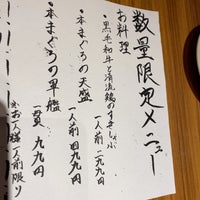 数量限定メニュー
お料理
・黒毛和牛と清流鶏のすきしゃぶ
一人前 一九九円
・本まぐろの天盛
一人前 四九九円
・本まぐろの軍艦
一貫 九九円
※お一人様一人前限り